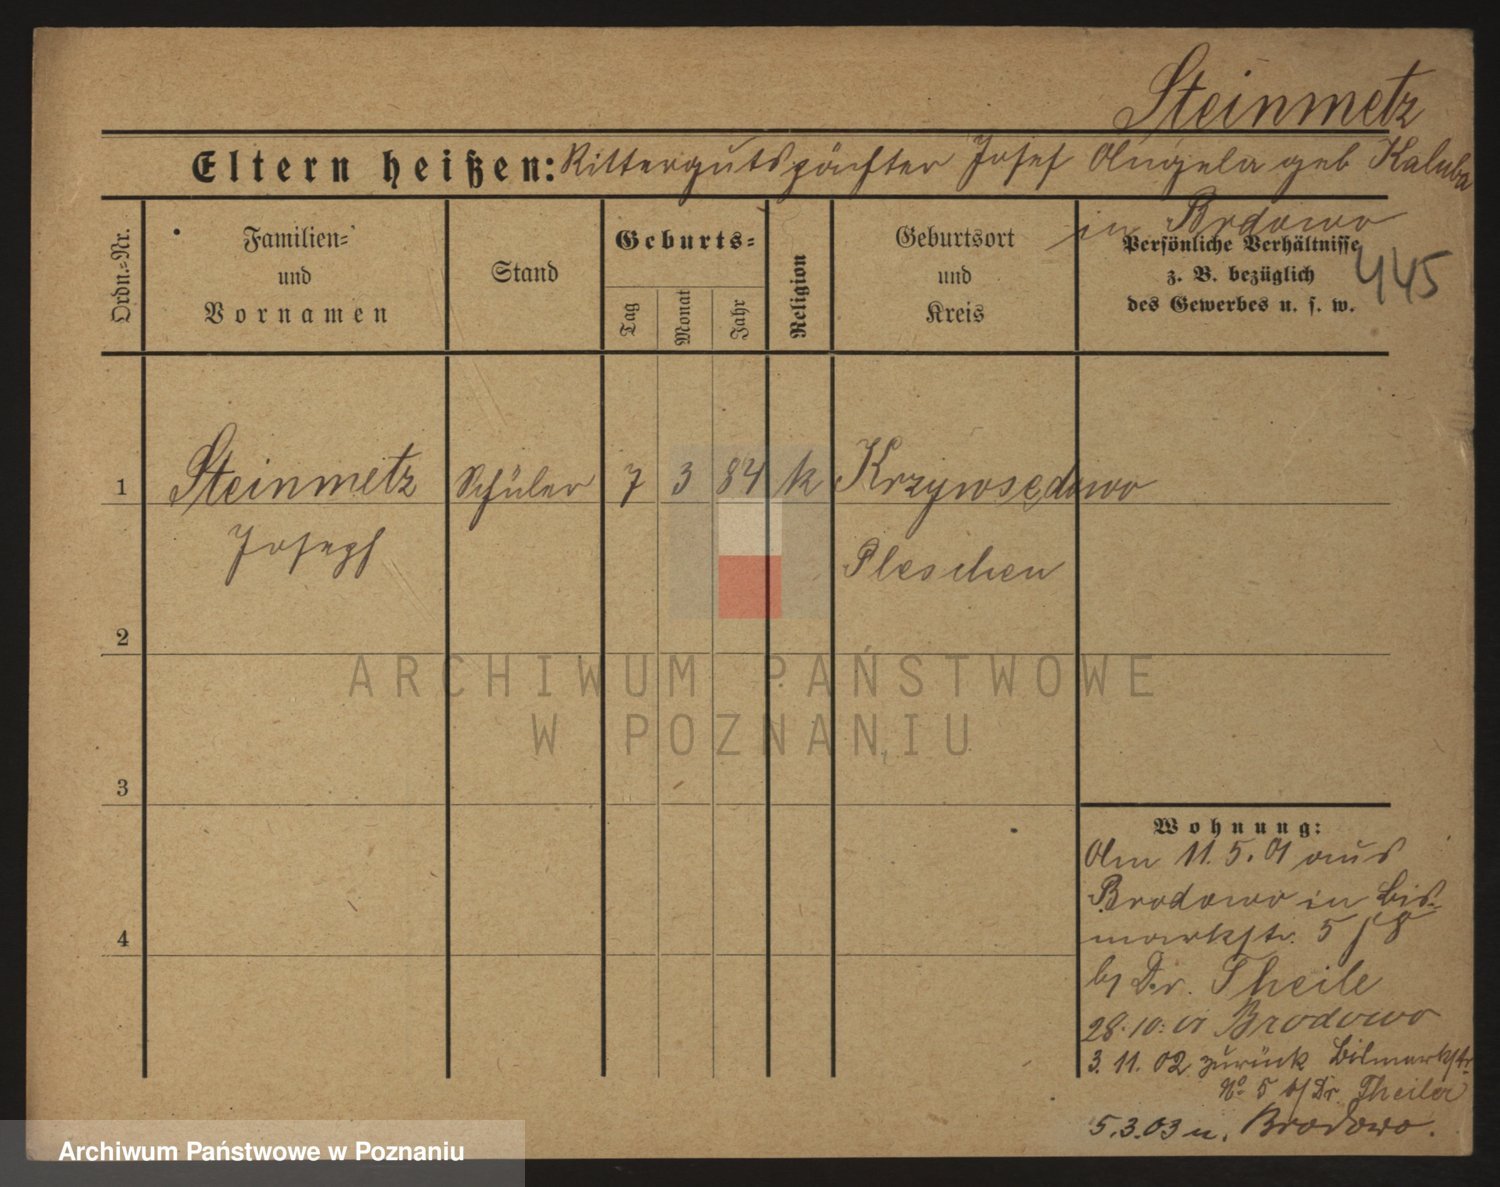 Steinmetz
Eltern heißen: Rittergutspächter Josef Angela geb Kaluba
in Brdowo
445
Ordn.-Nr.
Familien-
und
Vornamen
Stand
Geburts-
Tag
Monat
Jahr
Religion
Geburtsort
und
Kreis
Persönliche Verhältnisse
z. B. bezüglich
des Gewerbes u. s. w.
1 Steinmetz Schüler 7 3 84 k Krzywosędowo
Joseph Pleschen
2
3
4
Wohnung:
Am 11. 5. 01 aus
Brodowo in Bis-
markstr. 5
b/ Dr. Theile
28. 10. Brodowo
3. 11. 02 zurück Bismarkstr.
No 5 b/ Dr. Theile
5. 3. 03 n. Brodowo.
ARCHIWUM PAŃSTWOWE
W POZNANIU
Archiwum Państwowe w Poznaniu